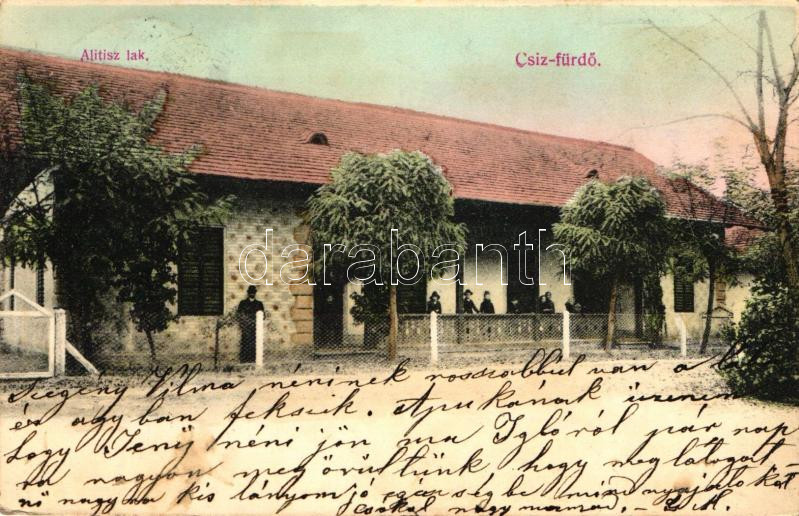 Alitisz lak.
Csiz-fürdő.
darabanth
Szegény Vilma néninek rosszabbul van a
és ágyban fekszik. Apukának üzenem
hogy Jenő néni jön ma Iglóról pár nap
ra nagyon megörültünk hogy meglátogat
nő nagyma kis lányom jó egészségbe mind nyájatokat
csókol nagymamád. -